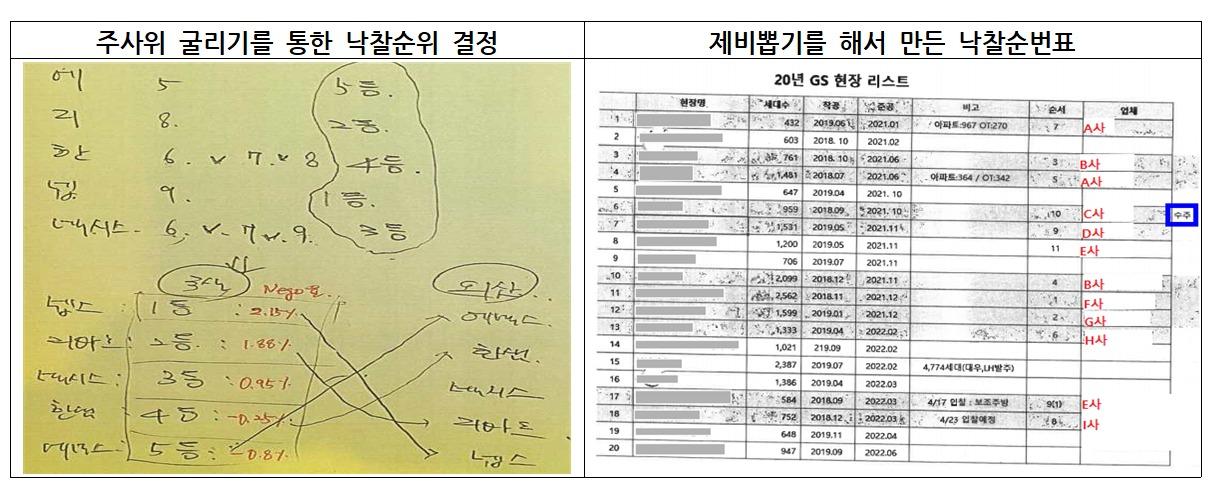 주사위 굴리기를 통한 낙찰순위 결정
에 5 5등.
리 8. 2등.
한 6. v 7. v 8 4등.
넵 9. 1등.
네시스. 6. v 7 v 9. 3등
Nego율.
넵스 : 1등 : 2.15% 에넥스.
리바트 : 2등 : 1.88% 한샘.
네시스 : 3등 : 0.95% 네시스
한샘 : 4등 : -0.25% 리바트.
에넥스 : 5등 : -0.8% 넵스
제비뽑기를 해서 만든 낙찰순번표
20년 GS 현장 리스트
현장명 세대수 착공 준공 비고 순서 업체
1 432 2019.06 2021.01 아파트:967 OT:270 7 A사
2 603 2018. 10 2021.02
3 761 2018. 10 2021.06 3 B사
4 1,481 2018.07 2021.06 아파트:364 / OT:342 5 A사
5 647 2019.04 2021. 10
6 959 2018.09 2021. 10 10 C사 수주
7 1,531 2019.05 2021.11 9 D사
8 1,200 2019.05 2021.11 11 E사
9 706 2019.07 2021.11
10 2,099 2018.12 2021.11 4 B사
11 2,562 2018.11 2021.12 1 F사
12 1,599 2019.01 2021.12 2 G사
13 1,333 2019.04 2022.02 6 H사
14 1,021 219.09 2022.02
15 2,387 2019.07 2022.02 4,774세대(대우,LH발주)
16 1,386 2019.04 2022.03
17 584 2018.09 2022.03 4/17 입찰 : 보조주방 9(1) E사
18 752 2018.12 2022.03 4/23 입찰예정 8 I사
19 648 2019.11 2022.04
20 947 2019.09 2022.06